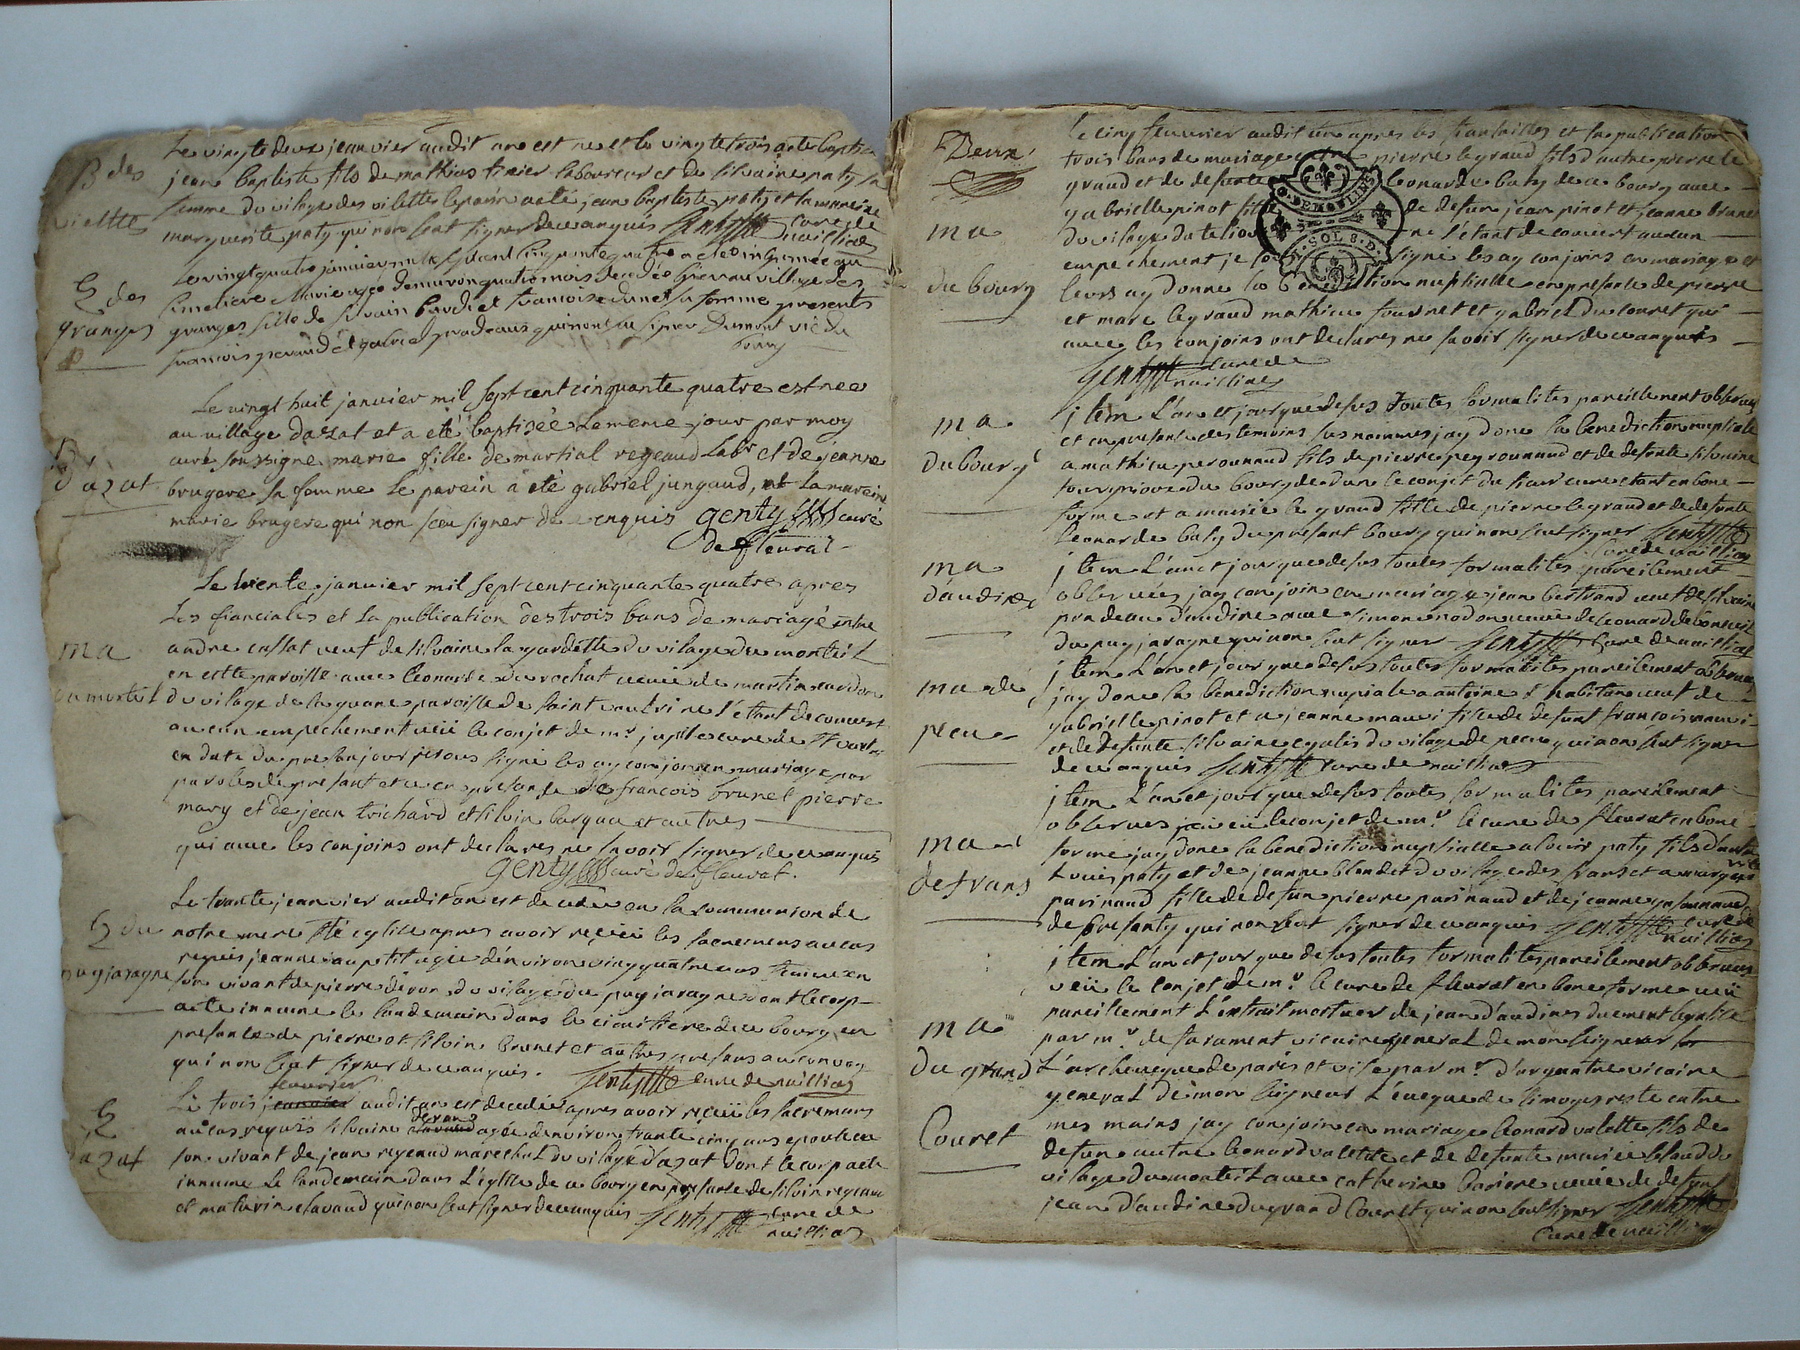 B des
viettes
Le vingte deux jeanvier audit an est ne et le vingte trois acte baptise
jean baptiste fils de mathieu laboureur et de silvaine paty sa
femme du vilage des vilette le parin a eté jean baptiste paty et la mareine
marguerite paty qui non seut signer de ce anquis Genty curé de
naillias
E des
granges
Le vingt quatre janvier mil sept cent cinquante quatre a eté inhumée au
cimetiere Marie agée d'environ quatre mois decedée hier au village des
granges fille de silvain et francoise sa femme presents
francois et gabriel pradeaux qui nont su signer Dumont vic du
bourg
B
d'azat
Le vingt huit janvier mil sept cent cinquante quatre est née
au village dazat et a eté baptisée le meme jour par moy
curé soussigné marie fille de martial regeaud labr et de jeanne
brugere sa femme le parein a eté gabriel jungaud, et la mareine
marie brugere qui non seu signer de ce enquis genty curé
de fleurat
ma
du monteil
Le trente janvier mil sept cent cinquante quatre apres
les fianciales et la publication des trois bans de mariage entre
andre cassat veuf de silvaine lagardette du vilage du monteil
en cette paroisse avec leonarde durochat veuve de martin
du vilage de paroisse de saint ne s'etant decouvert
aucun empechement veü le conjet de mr curé de St
en date du presant jour je sous signé les ay conjoins en mariage par
paroles de presant et ce en presance de francois brunet pierre
mary et de jean trichard et silvin et autres
qui avec les conjoins ont declares ne savoir signer de ce anquis
genty curé de fleurat.
E du
puyjaragne
Le trante jeanvier audit an est decedée en la communion de
notre mere Ste eglise apres avoir reçeü les sacremens au cas
requis jeanne aupetit agée d'environ vingquatre ans femme en
son vivant de pierre du vilage du puy jaragne dont le corp
acte innume le landemain dans le cimittiere de ce bourg en
presance de pierre et silvin brunet et autres presans au convoy
qui non seut signer de ce anquis. Genty curé de naillias
E
dazat
fevrier
Le trois jeanvier audit an est decedée apres avoir reçeü les sacremans
au cas requis silvaine clavaud agée d'environ trante cinq ans epouse en
son vivant de jean regeaud marechal du vilage d'azat dont le corp acte
innume le landemain dans l'eglise de ce bourg en presance de silvin regeaud
et maturin clavaud qui non seut signer de ce anquis Genty curé de
naillias
Deux
ma
du bourg
le cinq feuvrier audit an apres les fiansailles et la publication
trois bans de mariage entre pierre legrand fils d'autre pierre le
grand et de defunte leonarde baty de ce bourg avec
gabrielle pinot fille de defun jean pinot et jeanne brunet
du vilage ne s'etant decouvert aucun
empechement je signé les ay conjoins en mariage et
leurs ay donné la benediction nuptialle en presance de pierre
et marc legrand mathieu fournet et gabriel ducouret qui
avec les conjoins ont declares ne savoir signer de ce anquis
Genty curé de
naillias
GEN DE MOULINS
SOL 8.D
ma
du bourg
jtem L'an et jour que desus toutes formalites pareillement observées
et en presance des temoins sus nommes jay doné la benediction nuptiale
a mathieu perounaud fils de pierre peyrounaud et de defunte silvaine
du bourg de le conjet du sieur curé etant en bone
forme et a mariée legrand fille de pierre legrand et de defunte
leonarde baty du presant bourg qui non seut signer Genty
curé de naillias
ma
daudine
jtem L'an et jour que desus toutes formalites pareilement
observées jay conjoin en mariage jean bertrand veuf de silvaine
pradeau d'audine avec simone nadon veuve de leonard
du puy jaragne qui non seut signer Genty curé de naillias
ma de
peu
jtem L'an et jour que desus toutes formalites pareilement observées
jay doné la benediction nupiale a antoine habitant veuf de
gabrielle pinot et a jeanne mauvi fille de defunt francois mauvi
et de defunte silvaine du vilage de peu qui non seut signer
de ce anquis Genty curé de naillias
ma
de frans
jtem L'an et jour que desus toutes formalites pareilement
observées veü le conjet de mr le curé de fleurat en bone
forme jay doné la benediction nuptialle a louis paty fils d'autre
Louis paty et de jeanne blondet du vilage des frans et a marguerite
parinaud fille de defun pierre parinaud et de jeanne
de qui non seut signer de ce anquis Genty curé de
naillias
ma
du grand
Couret
jtem L'an et jour que desus toutes formalites pareilement observées
veü le conjet de mr le curé de fleurat en bone forme veü
pareillement L'extrait mortuer de jean d'audines duement legalisé
par mr de vicaire general de mon seigneur
L'archeveque de paris et visé par mr d'argentre vicaire
general de mon seigneur L'eveque de limoges resté entre
mes mains jay conjoin en mariage leonard valette fils de
defun autre leonard valette et de defunte marie du
vilage du monteil avec catherine bariere veuve de defunt
jean d'audine du grand Couret qui non seut signer Genty
curé de naillias